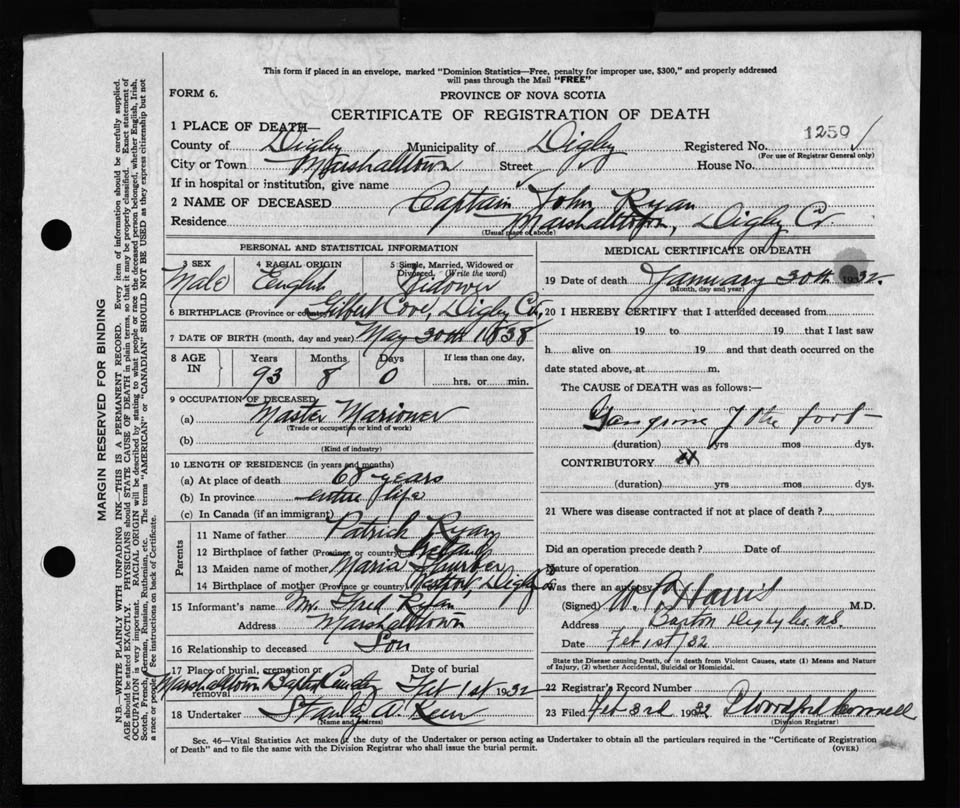 This form if placed in an envelope, marked "Dominion Statistics—Free, penalty for improper use, $300," and properly addressed
will pass through the Mail "FREE"
FORM 6.
PROVINCE OF NOVA SCOTIA
CERTIFICATE OF REGISTRATION OF DEATH
1 PLACE OF DEATH—
1250
County of Digby Municipality of Digby Registered No.
(For use of Registrar General only)
City or Town Marshalltown Street House No.
If in hospital or institution, give name
2 NAME OF DECEASED Captain John Ryan
Residence Marshalltown, Digby Co.
(Usual place of abode)
PERSONAL AND STATISTICAL INFORMATION
3 SEX 4 RACIAL ORIGIN 5 Single, Married, Widowed or
Divorced. (Write the word)
Male English Widower
6 BIRTHPLACE (Province or country) Gilbert Cove, Digby Co.
7 DATE OF BIRTH (month, day and year) May 30th 1838
8 AGE IN Years Months Days If less than one day,
93 8 0 hrs. or min.
9 OCCUPATION OF DECEASED
(a) Master Marioner
(Trade or occupation or kind of work)
(b)
(Kind of industry)
10 LENGTH OF RESIDENCE (in years and months)
(a) At place of death 68 years
(b) In province entire life
(c) In Canada (if an immigrant)
Parents
11 Name of father Patrick Ryan
12 Birthplace of father (Province or country) Ireland
13 Maiden name of mother Maria
14 Birthplace of mother (Province or country) Digby
15 Informant's name Mr. Fred Ryan
Address Marshalltown
16 Relationship to deceased Son
17 Place of burial, cremation or removal Date of burial
Marshalltown Baptist Cemetery Feb 1st 1932
18 Undertaker Stanley A.
(Name and address)
MEDICAL CERTIFICATE OF DEATH
19 Date of death January 30th 1932.
(Month, day and year)
20 I HEREBY CERTIFY that I attended deceased from
19 to 19 that I last saw
h alive on 19 and that death occurred on the
date stated above, at m.
The CAUSE of DEATH was as follows:—
Gangrine of the foot
(duration) yrs mos dys.
CONTRIBUTORY
(duration) yrs mos dys.
21 Where was disease contracted if not at place of death?
Did an operation precede death? Date of
Nature of operation
Was there an autopsy?
(Signed) Harris M.D.
Address Barton Digby Co. N.S.
Date Feb 1st/32
State the Disease causing Death, or in death from Violent Causes, state (1) Means and Nature
of Injury, (2) whether Accidental, Suicidal or Homicidal.
22 Registrar's Record Number
23 Filed Feb 3rd 1932
(Division Registrar)
Sec. 46—Vital Statistics Act makes it the duty of the Undertaker or person acting as Undertaker to obtain all the particulars required in the "Certificate of Registration
of Death" and to file the same with the Division Registrar who shall issue the burial permit.
(OVER)
MARGIN RESERVED FOR BINDING
N.B.—WRITE PLAINLY WITH UNFADING INK—THIS IS A PERMANENT RECORD. Every item of information should be carefully supplied.
AGE should be stated EXACTLY. PHYSICIANS should STATE CAUSE OF DEATH in plain terms, so that it may be properly classified. Exact statement of
OCCUPATION is very important. RACIAL ORIGIN will be described by stating to what people or race the deceased person belonged, whether English, Irish,
Scotch, French, German, Russian, Ruthenian, etc. The terms "AMERICAN" or "CANADIAN" SHOULD NOT BE USED as they express citizenship but not
a race or people. See instructions on back of Certificate.